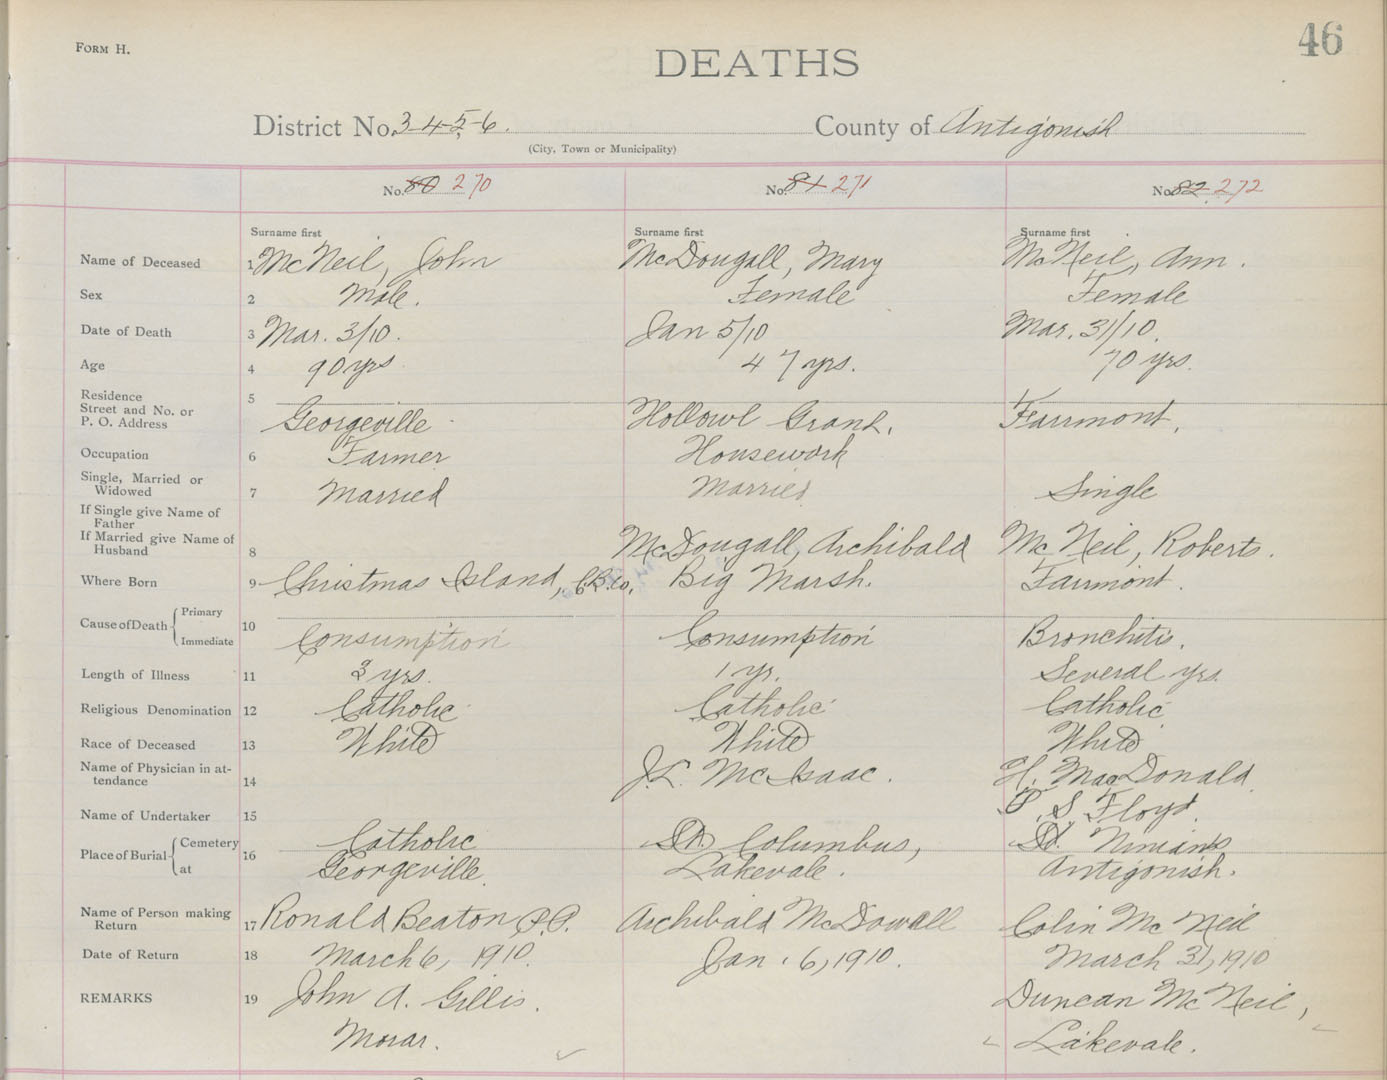 FORM H.
46
DEATHS
District No. 3-4-5-6. County of Antigonish
(City, Town or Municipality)
No. 80 270 No. 81 271 No. 82 272
Surname first Surname first Surname first
Name of Deceased 1 McNeil, John McDougall, Mary McNeil, Ann.
Sex 2 Male. Female Female
Date of Death 3 Mar. 3/10. Jan 5/10 Mar. 31/10.
Age 4 90 yrs 47 yrs. 70 yrs.
Residence 5
Street and No. or
P. O. Address Georgeville Hollowl Grant. Fairmont.
Occupation 6 Farmer Housework
Single, Married or
Widowed 7 Married Married Single
If Single give Name of
Father
If Married give Name of
Husband 8 McDougall, Archibald McNeil, Roberts.
Where Born 9 Christmas Island, C.B. Co. Big Marsh. Fairmont.
Cause of Death Primary 10
Immediate Consumption Consumption Bronchitis.
Length of Illness 11 3 yrs. 1 yr. Several yrs.
Religious Denomination 12 Catholic Catholic Catholic
Race of Deceased 13 White White White
Name of Physician in at-
tendance 14 J.L. McIsaac. H. MacDonald.
Name of Undertaker 15 P. S. Floyd.
Place of Burial Cemetery 16 Catholic St. Columbus, St. Ninian's
at Georgeville. Lakevale. Antigonish.
Name of Person making
Return 17 Ronald Beaton P.P. Archibald McDowall Colin McNeil
Date of Return 18 March 6, 1910. Jan. 6, 1910. March 31, 1910
REMARKS 19 John A. Gillis. Duncan McNeil,
Morar. Lakevale.